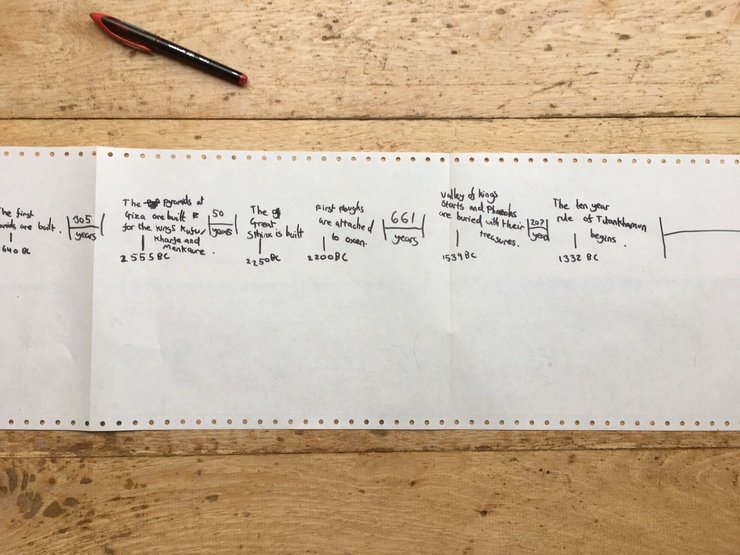 The first
are built.
640 BC
305
years
The pyramids at
Giza are built
for the kings Kufu,
Khafre and
Menkaure.
2555BC
50
years
The
Great
Sphinx is built
2250BC
First ploughs
are attached
to oxen.
2200BC
661
years
Valley of kings
starts and Pharaohs
are buried with their
treasures.
1539BC
207
years
The ten year
rule of Tutankhamun
begins.
1332 BC